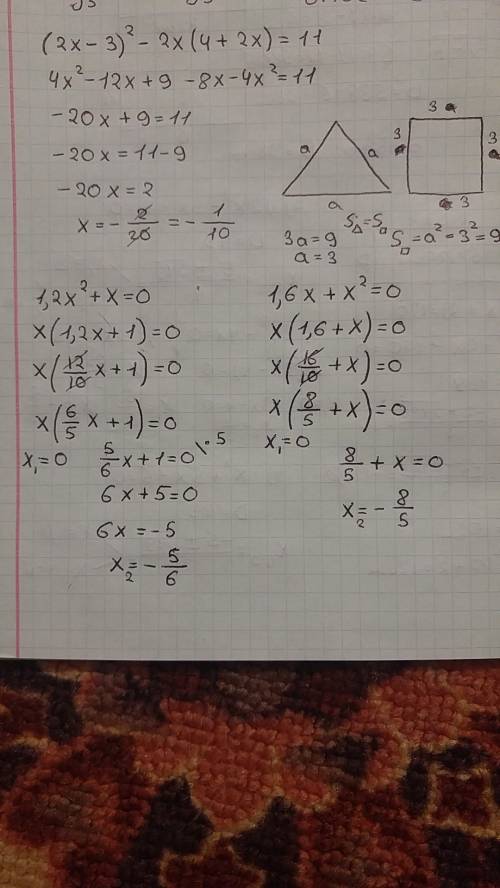 (2x - 3)² - 2x(4 + 2x) = 11
4x² - 12x + 9 - 8x - 4x² = 11
-20x + 9 = 11
-20x = 11 - 9
-20x = 2
x = - 2/20 = - 1/10
a a a
3 3 3 3
S△ = S□
3a = 9
a = 3
S□ = a² = 3² = 9
1,2x² + x = 0
x(1,2x + 1) = 0
x(12/10 x + 1) = 0
x(6/5 x + 1) = 0
x₁ = 0 5/6 x + 1 = 0 \·5
6x + 5 = 0
6x = -5
x₂ = - 5/6
1,6x + x² = 0
x(1,6 + x) = 0
x(16/10 + x) = 0
x(8/5 + x) = 0
x₁ = 0
8/5 + x = 0
x₂ = - 8/5